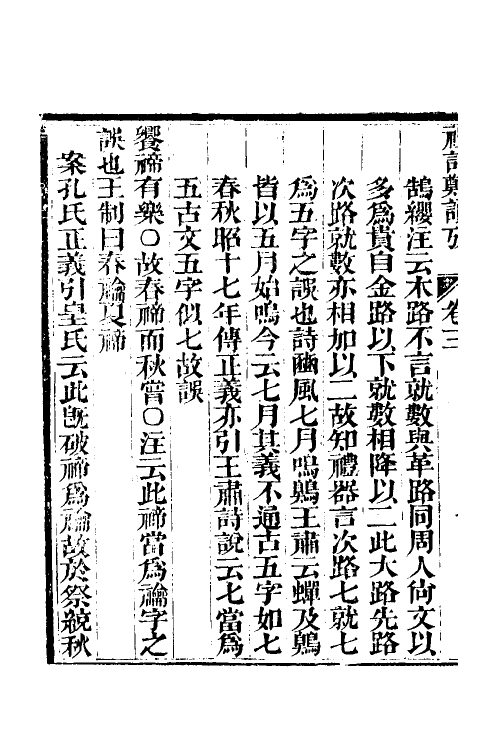 禮記鄭讀攷 卷三
鵠纓注云木路不言就數與革路同周人尙文以
多爲貴自金路以下就數相降以二此大路先路
次路就數亦相加以二故知禮器言次路七就七
爲五字之誤也詩豳風七月鳴鵙王肅云蟬及鵙
皆以五月始鳴今云七月其義不通古五字如七
春秋昭十七年傳正義亦引王肅詩說云七當爲
五古文五字似七故誤
饗禘有樂〇故春禘而秋嘗〇注云此禘當爲禴字之
誤也王制曰春禴夏禘
案孔氏正義引皇氏云此旣破禘爲禴故於祭統秋